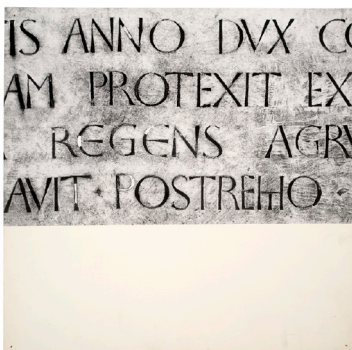 IS ANNO DVX CO
AM PROTEXIT EX
REGENS AGRV
AVIT · POSTREMO ·